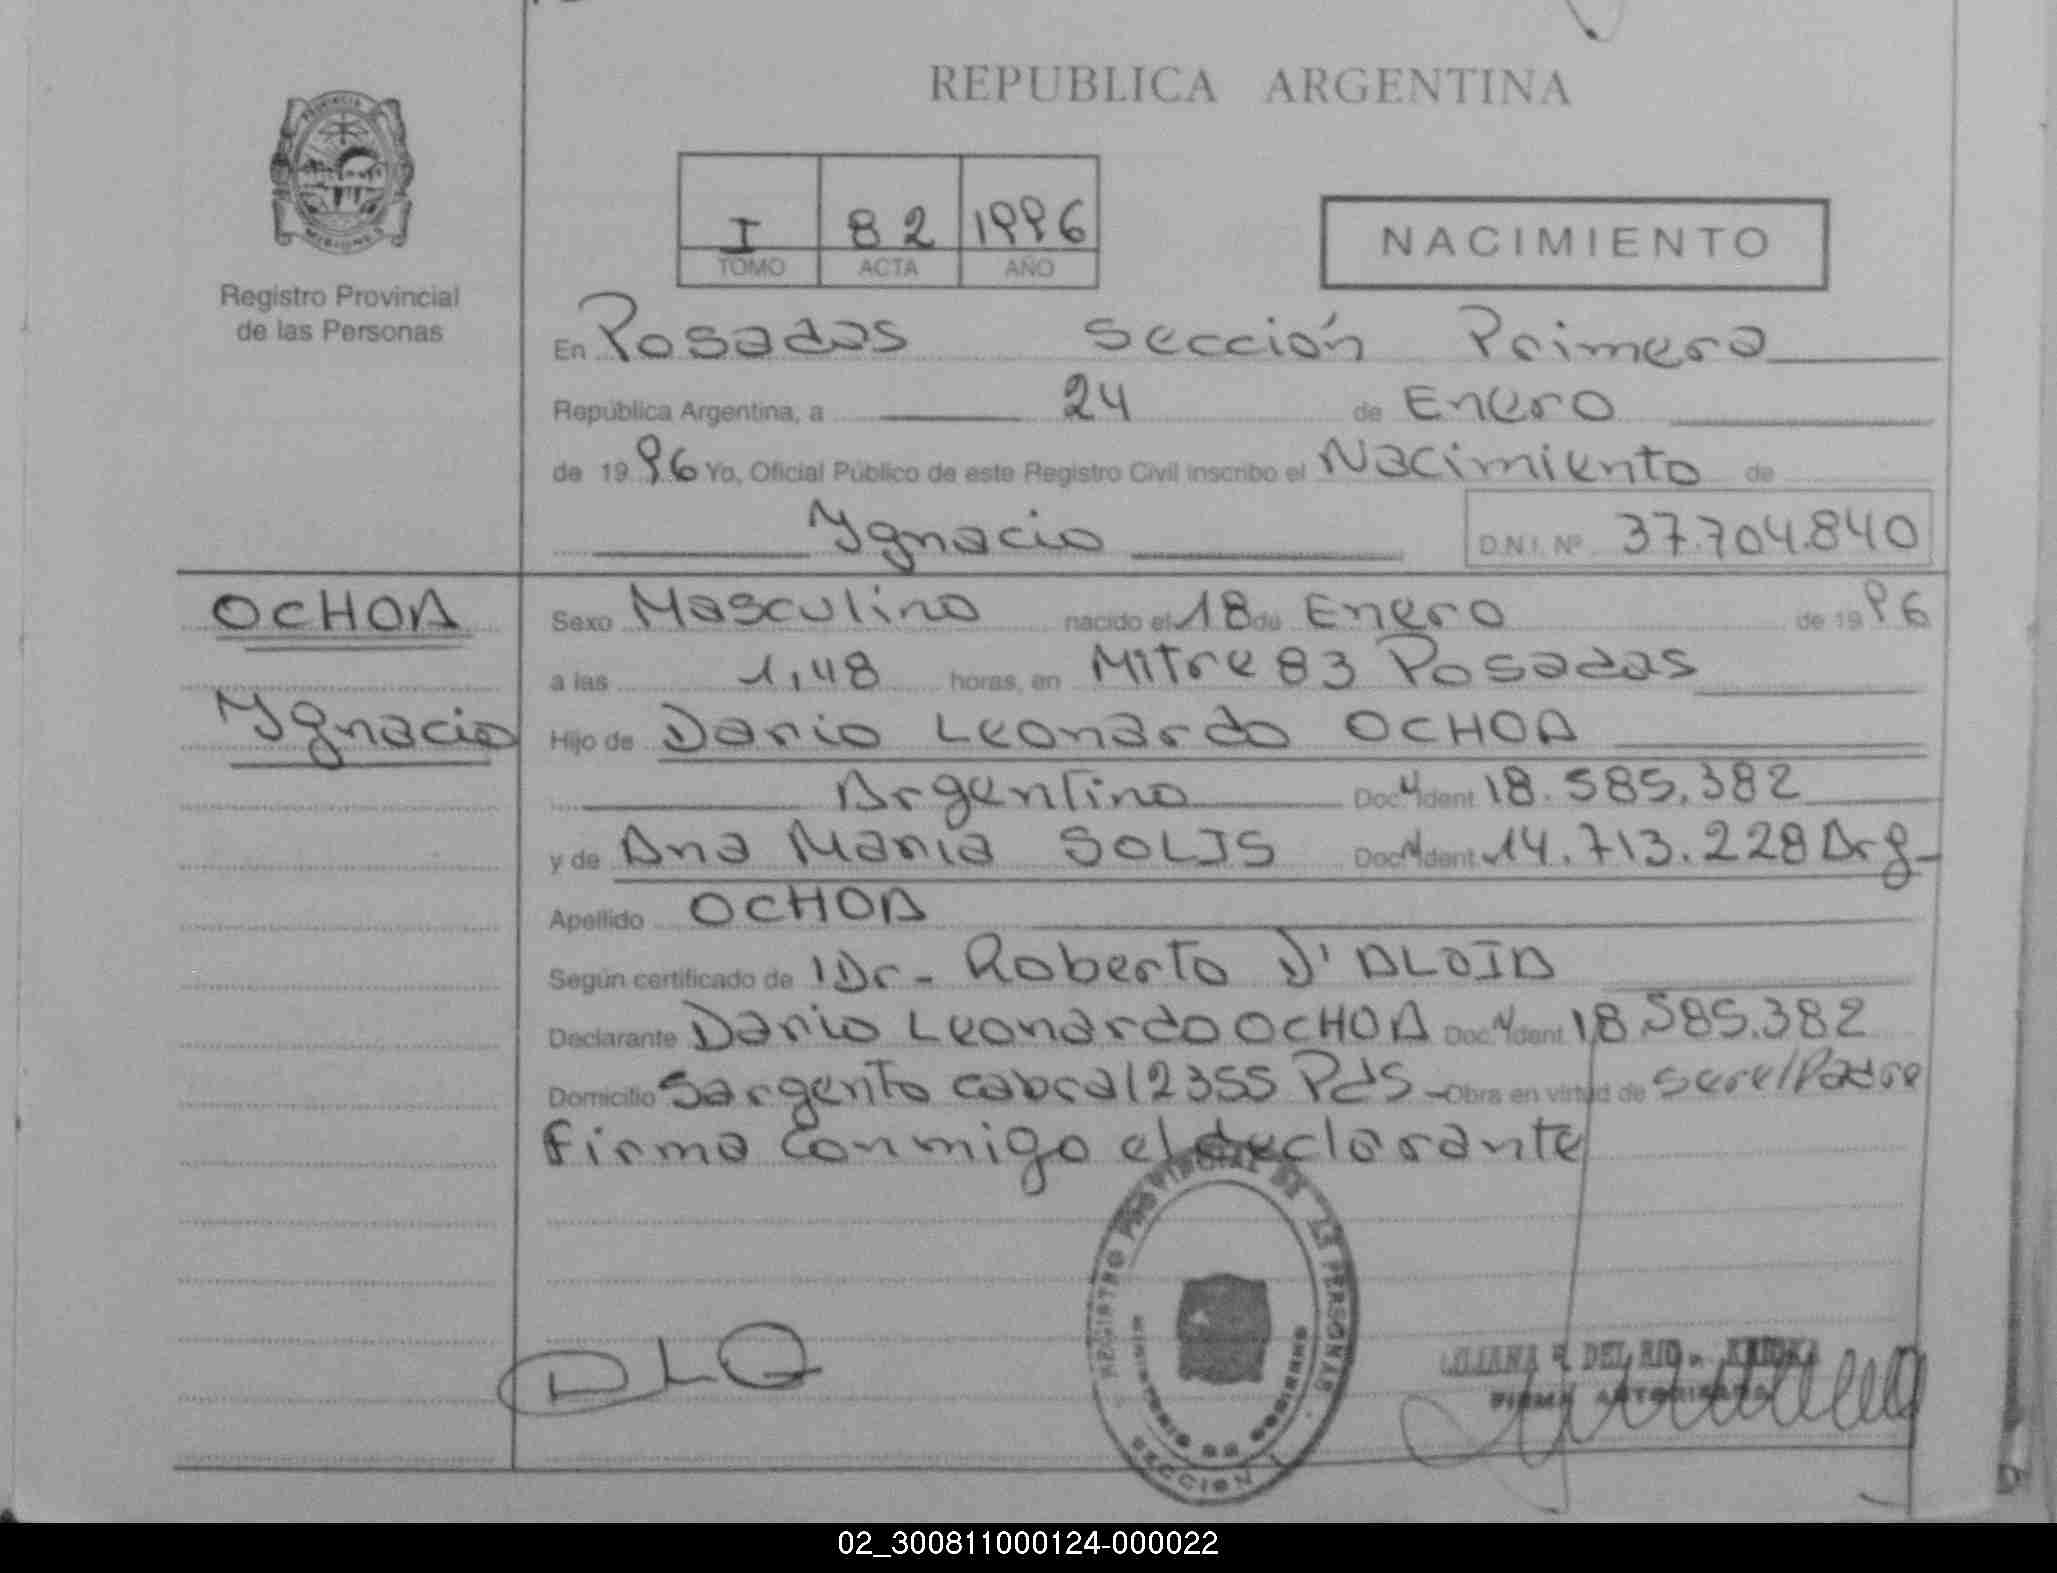 REPUBLICA ARGENTINA
PROVINCIA
MISIONES
Registro Provincial
de las Personas
I 82 1996
TOMO ACTA AÑO
NACIMIENTO
En Posadas Sección Primera
República Argentina, a 24 de Enero
de 1996 Yo, Oficial Público de este Registro Civil inscribo el Nacimiento de
Ygnacio D.N.I. Nº 37.704.840
OCHOA
Ygnacio
Sexo Masculino nacido el 18 de Enero de 1996
a las 1,48 horas, en Mitre 83 Posadas
Hijo de Dario Leonardo OCHOA
Argentino Doc N ident 18.585.382
y de Ana Maria SOLIS Doc N ident 14.713.228 Arg-
Apellido OCHOA
Según certificado de Dr- Roberto D'ALOIA
Declarante Dario Leonardo OCHOA Doc N ident 18.585.382
Domicilio Sargento Cabral 2355 Pds- Obra en virtud de ser el Padre
Firma Conmigo el declarante
REGISTRO PROVINCIAL DE LAS PERSONAS
MINISTERIO DE GOBIERNO
SECCION 1
DLO
DEL RIO
FIRMA AUTORIZADA
02_300811000124-000022